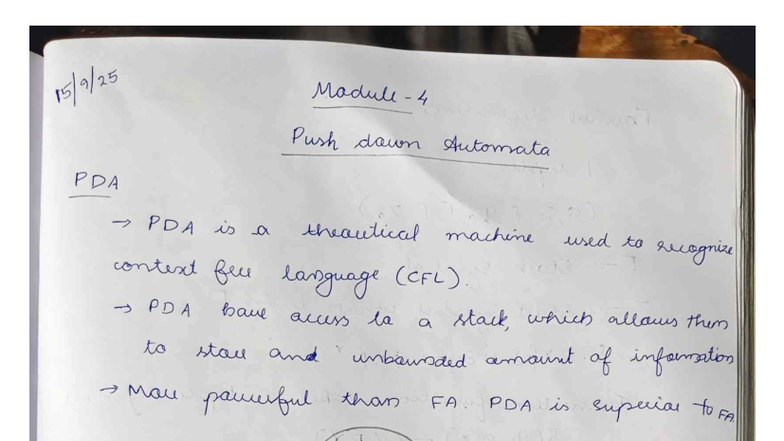 15/9/25
Module - 4
Push down Automata
PDA
→ PDA is a theoritical machine used to recognize
context free language (CFL).
→ PDA have access to a stack, which allows them
to store and unbounded amount of information
→ More powerful than FA. PDA is superior to FA.